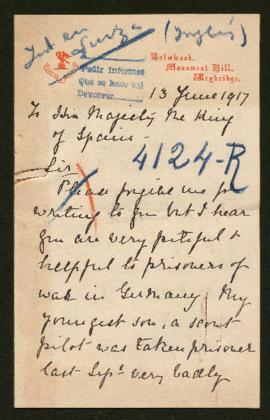 (Inglés)
Holwood,
Monument Hill,
Weybridge.
Pedir informes
Que se haga así
Devolver
13 June 1917
To His Majesty The King
of Spain -
Sir
4124-R
Please forgive me for
writing to you but I hear
you are very pitiful &
helpful to prisoners of
war in Germany My
youngest son, a scout
pilot was taken prisoner
last Sept. very badly